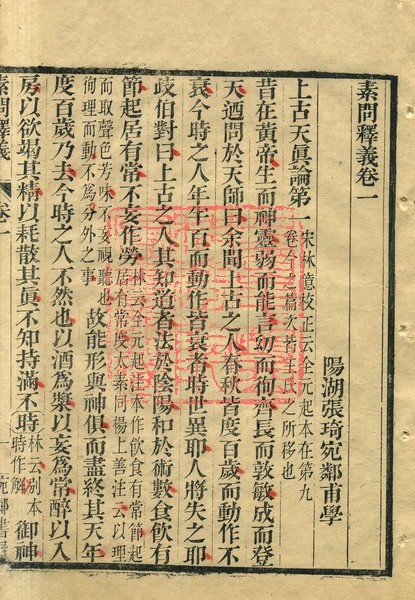 素問釋義卷一
陽湖張琦宛鄰甫學
上古天眞論第一
宋林億校正云全元起本在第九
卷今之篇次皆王氏之所移也
昔在黃帝生而神靈弱而能言幼而徇齊長而敦敏成而登
天迺問於天師曰余聞上古之人春秋皆度百歲而動作不
衰今時之人年半百而動作皆衰者時世異耶人將失之耶
歧伯對曰上古之人其知道者法於陰陽和於術數食飲有
節起居有常不妄作勞
林云全元起注本作飲食有常節起
居有常度太素同楊上善注云以理
而取聲色芳味不妄視聽也
徇理而動不為分外之事
故能形與神俱而盡終其天年
度百歲乃去今時之人不然也以酒為漿以妄為常醉以入
房以欲竭其精以耗散其眞不知持滿不時
林云別本
時作解
御神
素問釋義
卷一
一
宛鄰書屋